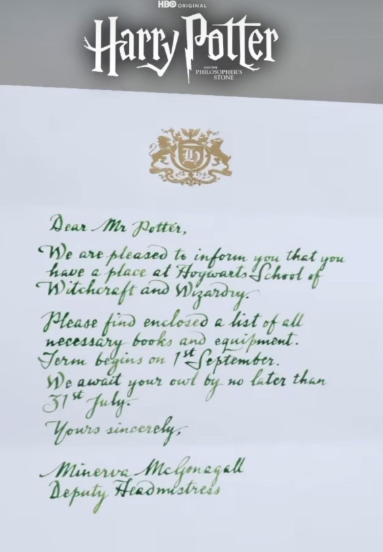 HBO ORIGINAL
Harry Potter
AND THE
PHILOSOPHER'S
STONE
H
Dear Mr Potter,
We are pleased to inform you that you
have a place at Hogwarts School of
Witchcraft and Wizardry.
Please find enclosed a list of all
necessary books and equipment.
Term begins on 1st September.
We await your owl by no later than
31st July.
Yours sincerely,
Minerva McGonagall
Deputy Headmistress